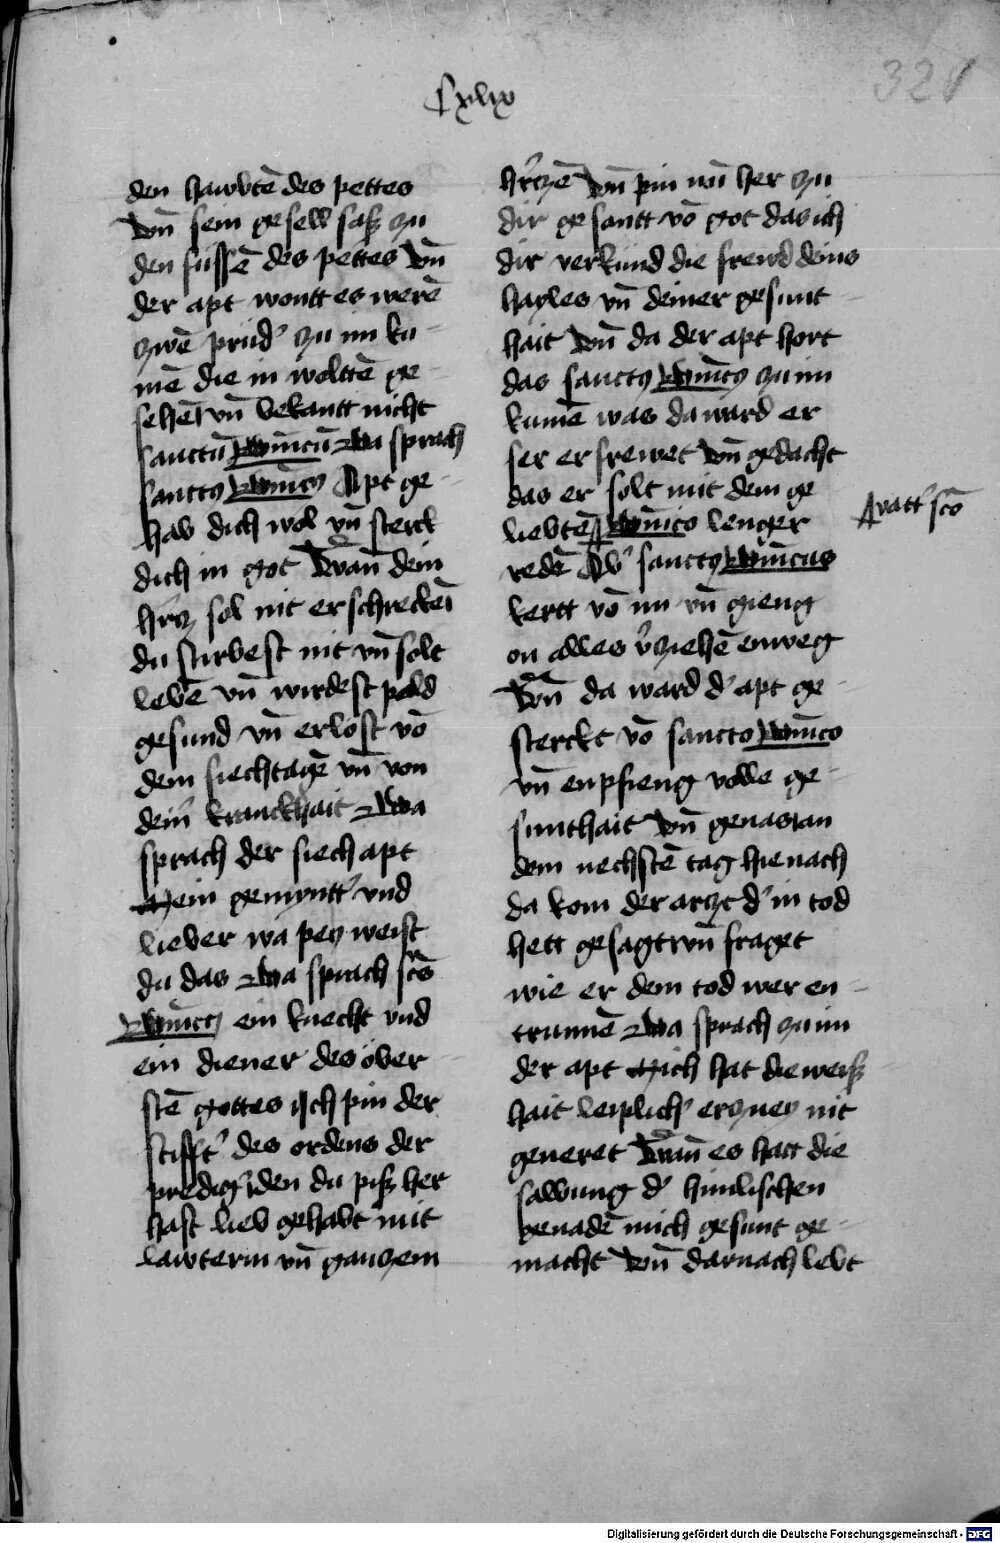 Cxlix
321
den hawbtē des pettes
Vn̄ sein gesell saſz zu
den fuͤssē des pettes Vn̄
der apt wontt es werē
zwē pruͤd' zu im ku-
mē die in woltтē ge-
sehē vn̄ bekantt nicht
sanctū Dm̄icū Da sprach
sanctus Dm̄icus Apt ge-
hab dich wol vn̄ sterck
dich in got Wan̄ dein
h'cz sol nit erschreckē
du stirbest nit vn̄ solt
lebē vn̄ wirdest pald
gesund vn̄ erlost vō
dem siechtagē vn̄ von
dein' kranckhait Da
sprach der siech apt
Mein gemyntt' vnd
lieber wa pey weist
du das Da sprach scūs
Dm̄icus ein knecht vnd
ein diener des ober-
stē gottes ich pin der
stifft' des ordens der
predig' den du piſz her
hast lieb gehabt mit
lawterm vn̄ ganczem
h'czē Vn̄ pin nū her zu
dir gesantt vō got das ich
dir verkuͤnd die frewd deins
hayles vn̄ deiner gesunt-
hait Vn̄ da der apt hort
das sanctus Dm̄icus zu im
kumē was da ward er
ser erfrewet Vn̄ gedacht
das er solt mit dem ge
liebtē Dm̄ico lenger
vatt' scō
redē Ab' sanctus Dm̄icus
kertt vō im vn̄ gieng
on alles v'ziehē enweg
Vn̄ da ward d' apt ge-
sterckt vō sancto Dm̄ico
vn̄ enpfieng volle ge-
sunthait Vn̄ genas an
dem nechstē tag hie nach
da kom der arczt d' im tod
hett gesagt vn̄ fraget
wie er dem tod wer en-
trunnē Da sprach zu im
der apt Mich hat die weiſz-
hait leiplich' erczney nit
generet Wan̄ es hatt die
salbung d' himlischen
genadē mich gesunt ge-
macht Vn̄ darnach lebt
Digitalisierung gefördert durch die Deutsche Forschungsgemeinschaft - DFG